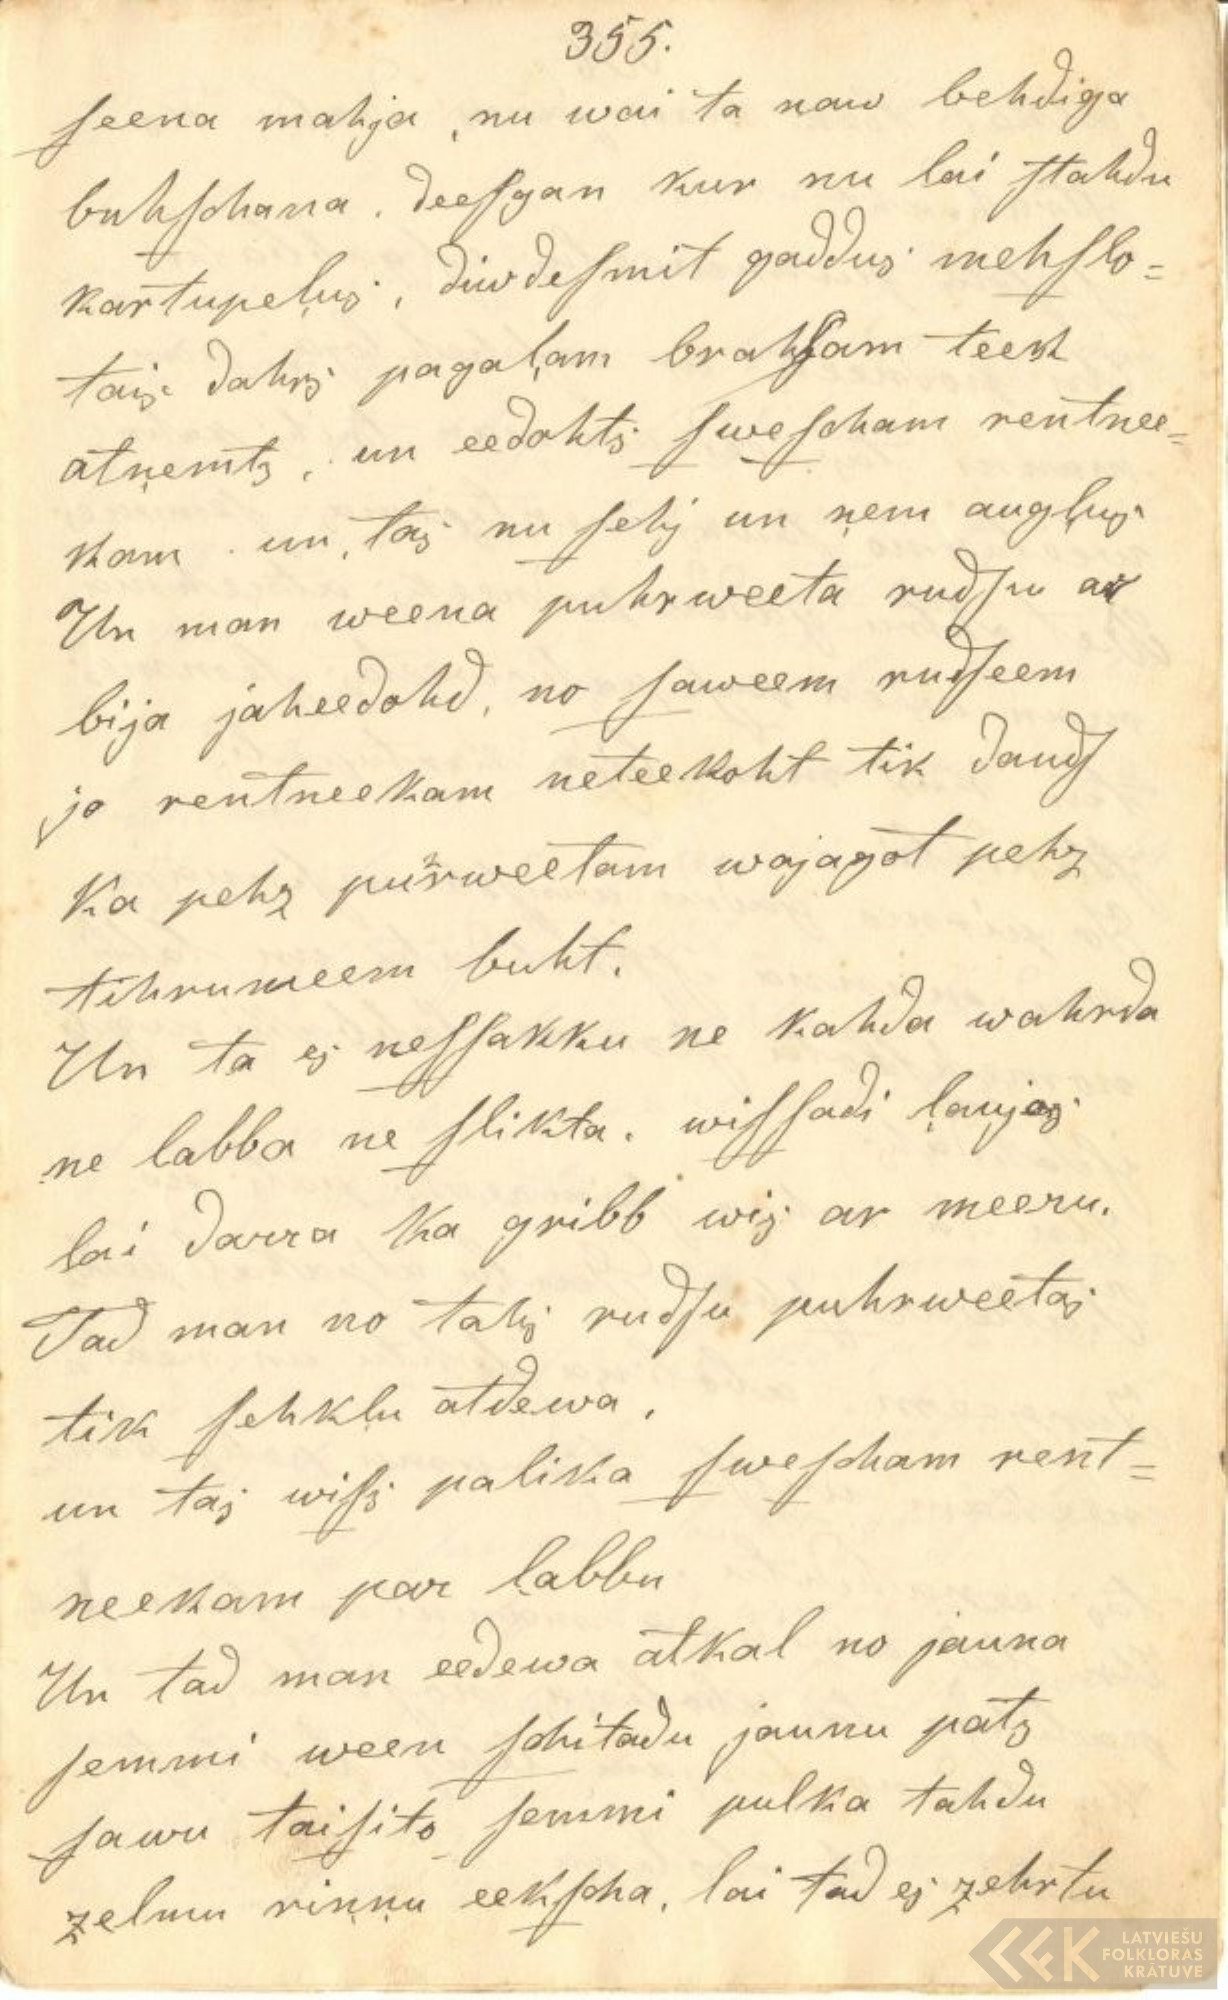 355.
ſeena mahja, nu wai ta naw behdiga
buhſchana. deeſgan kur nu lai ſtahdu
kartupeļus, diwdeſmit gaddus mehſlo=
tais dahrs pagaļam brahſam teek
atņemts, un eedohts ſweſcham rentnee=
kam. un, tas nu ſehj un ņem augļus
Un man weena puhrweeta rudſu ar
bija jaheedohd, no ſaweem rudſeem
jo rentneekam neteekoht tik daudſ
Ka pehz puhrweetam wajagot pehz
tihrumeem buht.
Un ta es neſſakku ne kahda wahrda
ne labba ne ſlikta. wiſſadi ļaujos
lai darra ka gribb wis ar meeru.
Tad man no tahs rudſu puhrweetas
tik ſehkļu atdewa,
un tas wiſs palika ſweſcham rent=
neekam par ļabbu
Un tad man eedewa atkal no jauna
ſemmi ween ſchitadu jaunu pats
ſawu taiſito ſemmi pulka tahdu
zelmu riņņu eekſcha, lai tad es zehrtu
LATVIEŠU
FOLKLORAS
KRĀTUVE